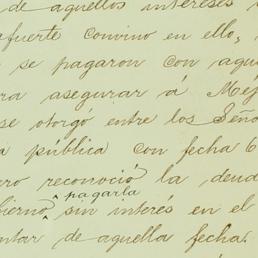 de aquellos intereses
afuerte convino en ello,
se pagaron con aqu
ra asegurar á Méj
se otorgó entre los Seño
a pública con fecha 6
ero reconoció la deud
pagarla
bierno sin interés en el
ntar de aquella fecha.